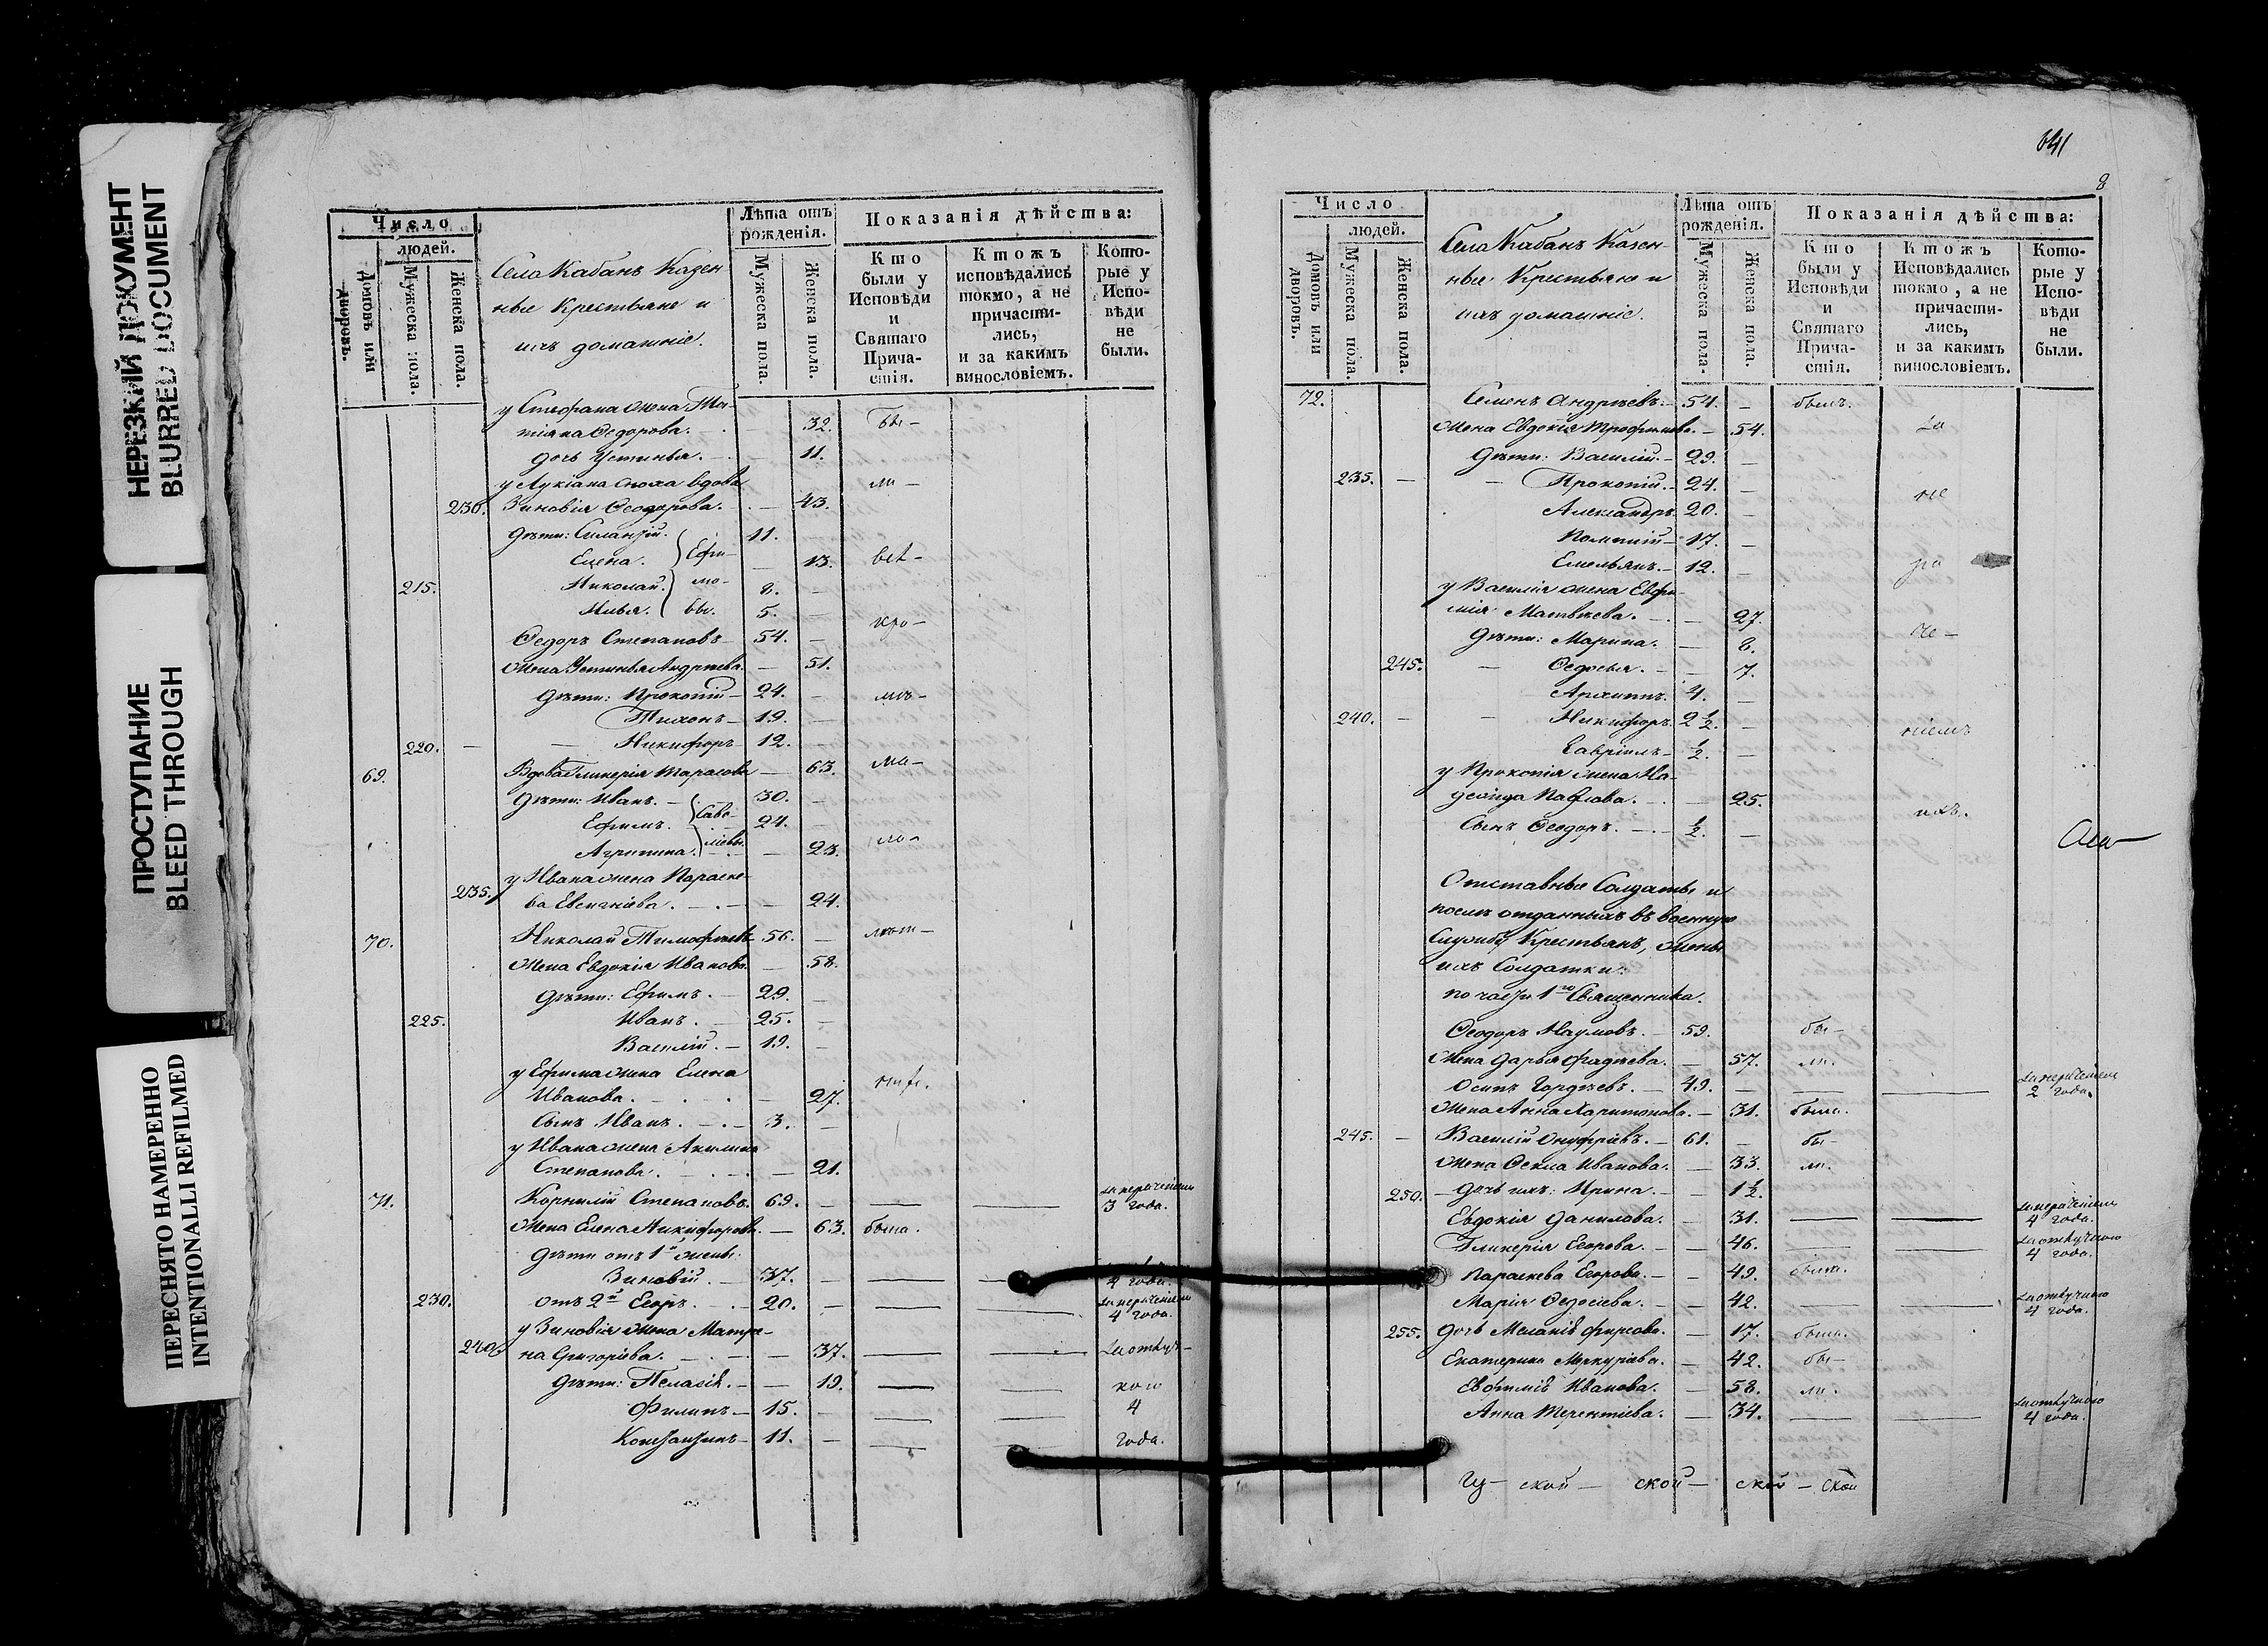 НЕРЕЗКИЙ ДОКУМЕНТ
BLURRED DOCUMENT
ПРОСТУПАНИЕ
BLEED THROUGH
ПЕРЕСНЯТО НАМЕРЕННО
INTENTIONALLI REFILMED
Число
людей.
Домовъ или дворовъ.
Мужеска пола.
Женска пола.
Села Кабанъ Казен
ные Крестьяне и
ихъ домашніе.
Лѣта отъ рожденія.
Мужеска пола.
Женска пола.
Показанія дѣйства:
Кто были у Исповѣди и Святаго Прича- стія.
Ктожъ исповѣдались токмо, а не причасти- лись, и за какимъ винословіемъ.
Кото- рые у Испо- вѣди не были.
у Стефана жена Та-
тіяна Ѳедорова. 32. Бы-
дочь Устинья. 11.
у Лукіана сноха вдова ли-
230. Зиновія Ѳеодорова. 43.
Дѣти: 11.
Елена. Ефи- 13. всѣ-
215. Николай. мо- 8.
Илья. вы. 5.
Ѳедоръ Степановъ 54.
Жена Устинья Андреева. 51.
Дѣти: Прокопій 24.
Тихонъ 19.
220. Никифоръ 12.
69. Вдова Гликерія Тарасова 63.
Дѣти: Иванъ. Саве- 30.
Ефимъ. 24.
Агрипина. льевы 23.
у Ивана жена Параске-
235. ва Евсигніева. 24.
70. Николай Тимофеевъ 56.
Жена Евдокія Иванова. 58.
Дѣти: Ефимъ. 29.
225. Иванъ. 25.
Василій. 19.
у Ефима жена Елена
Иванова. 27.
Сынъ Иванъ. 3.
у Ивана жена Акилина
Степанова. 21.
71. Корнилій Степановъ. 69. 3 года.
Жена Елена Никифорова. 63. была.
Дѣти отъ 1й жены:
Зиновій. 37. 4 года.
230. отъ 2й Егоръ. 20. 4 года.
у Зиновія жена Матре-
240. на Григорьева. 37. За отлуч-
Дѣти: Пелагія. 19. кою
Филипъ 15. 4
Константинъ 11. года.
641
8
Число
людей.
Домовъ или дворовъ.
Мужеска пола.
Женска пола.
Села Кабанъ Казен-
ные Крестьяне и
ихъ домашніе.
Лѣта отъ рожденія.
Мужеска пола.
Женска пола.
Показанія дѣйства:
Кто были у Исповѣди и Святаго Прича- стія.
Ктожъ Исповѣдались токмо, а не причасти- лись, и за какимъ винословіемъ.
Кото- рые у Испо- вѣди не были.
72. Семенъ Андреевъ. 54. былъ.
Жена Евдокія Трофимова. 54. За
Дѣти: Василій. 29.
235. Прокопій. 24. не
Александръ. 20.
17.
Емельянъ. 12. ра
у Василія жена Евфи-
мія Матвѣева. 27.
Дѣти: Марина. 8. че-
245. Ѳедосья. 7.
Архиппъ. 4.
240. Никифоръ. 2 1/2. ніемъ
Гавріилъ 1/2.
у Прокопія жена На-
дежда Павлова. 25. ихъ.
Сынъ Ѳеодоръ. 1/2.
Отставные Солдаты и
послѣ отданныхъ въ военную
Службу Крестьянъ, жены
ихъ Солдатки.
по части 1го Священника.
Ѳеодоръ Наумовъ. 59. бы-
Жена Дарья Фадѣева. 57. ли.
Осипъ Гордѣевъ. 49. 2 года.
Жена Анна Харитонова. 31. была.
245. Василій Онуфріевъ. 61. бы-
Жена Ѳекла Иванова. 33. ли.
250. Дочь ихъ: Ирина. 1 1/2.
Евдокія Данилова. 31. 4 года.
Гликерія Егорова. 46. За отлучкою 4 года.
Параскева Егорова. 49. была.
Марія Ѳедосіева. 42. За отлучкою 4 года.
255. Дочь Меланія Фирсова. 17. была.
Екатерина Меркуріева. 42. бы-
Евфимія Иванова. 58. ли.
Анна Терентіева. 34. За отлучкою 4 года.
ской ской ской ской